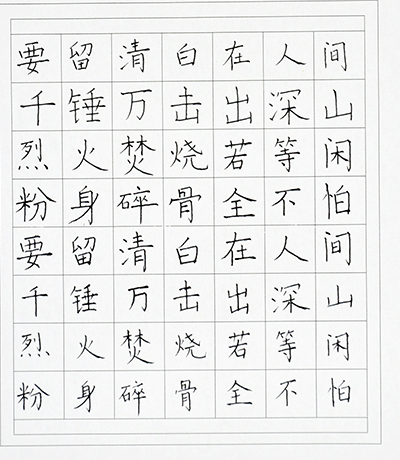 要留清白在人间
千锤万击出深山
烈火焚烧若等闲
粉身碎骨全不怕
要留清白在人间
千锤万击出深山
烈火焚烧若等闲
粉身碎骨全不怕